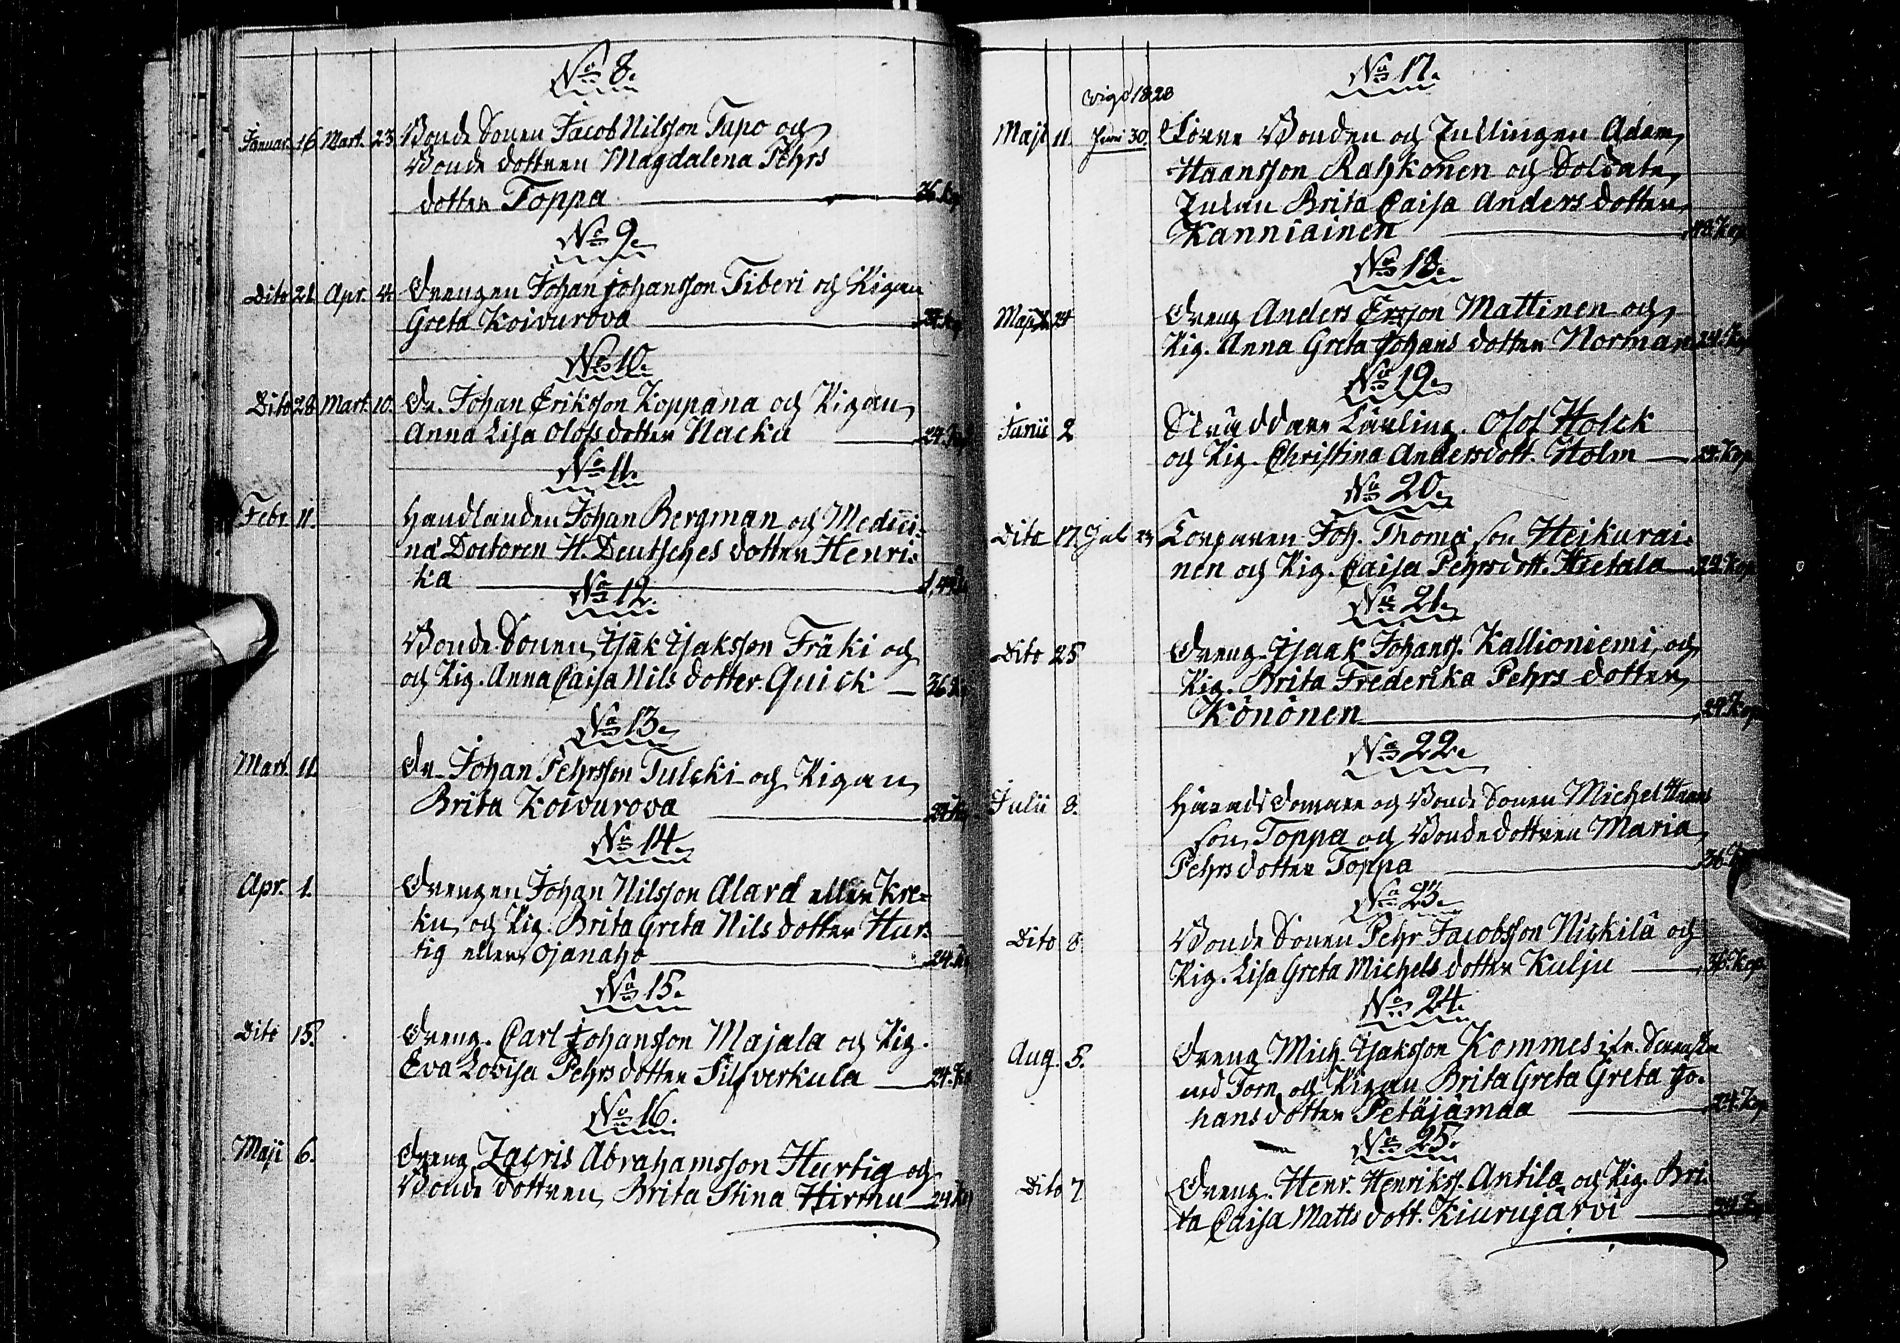 No 8.
Januar. 16 Mart. 23 Bonde Sonen Jacob Nilsson Tapo och
Bonde dottren Magdalena Pehrs
dotter Toppa 36. Kop
No 9.
Dito 21 Apr. 4 Drengen Johan Johansson Fiberi och Pigan
Greta Koivurova 24. Kop
No 10.
Dito 28 Mart. 10 Dr. Johan Eriksson Koppana och Pigan
Anna Lisa Olofsdotter Nacka 24. Kop
No 11.
Febr. 11. Handlanden Johan Bergman och Medici-
næ Doctoren H. Deutsches dotter Henri-
ka
No 12.
Bonde Sonen Isak Isaksson Fräki och
och Pig. Anna Caisa Nils dotter Quick 36 K
No 13.
Mart. 11. Dr. Johan Pehrsson Tulcki och Pigan
Brita Koivurova 24 K
No 14.
Apr. 1. Drengen Johan Nilsson Alard eller Kre-
ku och Pig. Brita Greta Nils dotter Hur-
tig eller Ojanaho 24. K
No 15.
Dito 15. Dreng. Carl Johansson Majala och Pig.
Eva Lovisa Pehrs dotter Silfverkula 24. K
No 16.
Maji 6. Dreng Zacris Abrahamsson Hurtig och
Bonde dottren Brita Stina Hirmu 24 K
No 17.
vigd 1828
Maji 11. Junii 30. Förre Bonden och Inhysingen Adam
Haansson Rahkonen och Soldate
Brita Caisa Anders dotter
Kanniainen Kop
No 18.
Maji 24 Dreng Anders Ersson Mattinen och
Pig. Anna Greta Johans dotter Norman 24. Kop
No 19.
Junii 2 Skräddare Lärling. Olof Holck
och Pig. Christina Andersdott. Holm 24. Kop
No 20.
Dito 17. Jul Joh. Thomæ son Heikurai-
nen och Pig. Caisa Pehrsdott. Hietala 24. Kop
No 21.
Dito 25 Dreng Isaak Johanss. Kallioniemi, och
Pig. Brita Frederika Pehrs dotter
Könönen 24. Kop
No 22.
Julii 8. Häradsdomare och Bonde Sonen Michel Hans
son Toppa och Bondedottren Maria
Pehrs dotter Toppa 36. K
No 23.
Dito 8 Bonde Sonen Pehr Jacobsson Nickilä och
Pig. Lisa Greta Michels dotter Kulju 36. Kop.
No 24.
Aug. 5. Dreng Mich. Isaksson Kommes
Torn. och Pigan Brita Greta Greta Jo-
hans dotter Petäjämaa 24. Kop
No 25.
Dito 7 Dreng. Henr. Henrikss. Antila och Pig. Bri-
ta Caisa Matts dott. Kiurujärvi 24. Kop